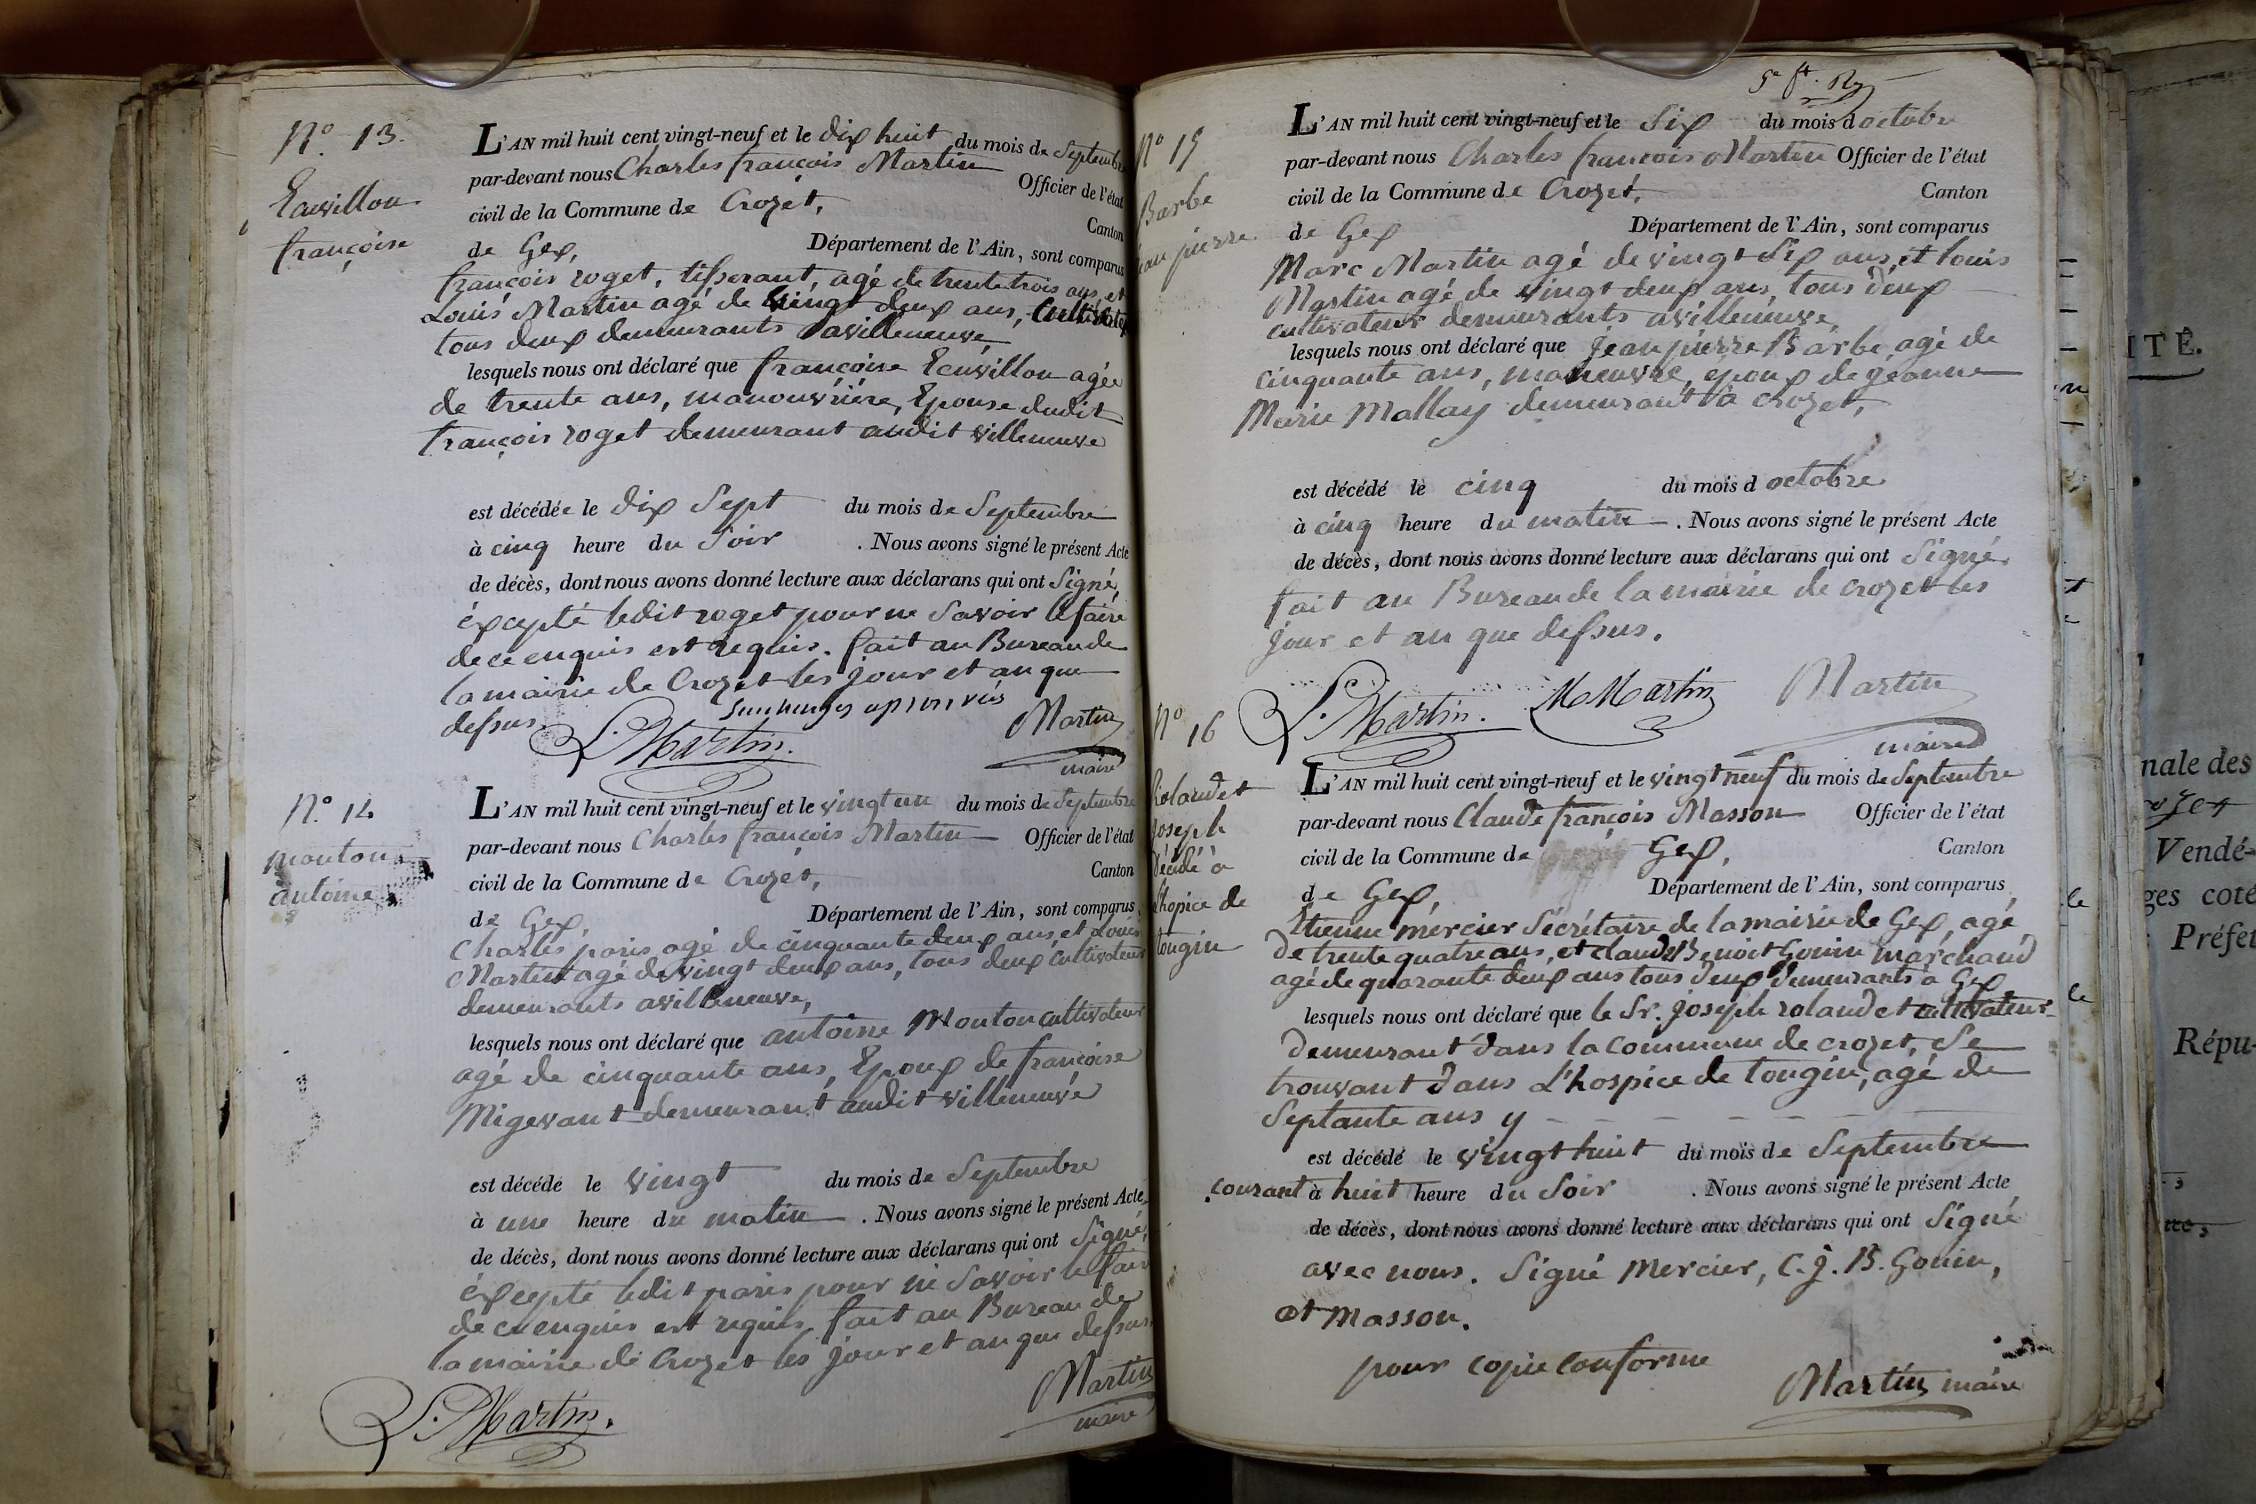 N.º 13.
Ecuvillon
françoise
L'AN mil huit cent vingt-neuf et le dix huit du mois de Septembre
par-devant nous Charles françois Martin Officier de l'état
civil de la Commune de Crozet, Canton
de Gex, Département de l'Ain, sont comparus
françois roget, tisserant, agé de trente trois ans, et
Louis Martin agé de vingt deux ans, Cultivateur
tous deux demeurants avilleneuve,
lesquels nous ont déclaré que françoise Ecuvillon agée
de trente ans, manouvrière, Epouse dudit
françois roget demeurant audit villeneuve
est décédée le dix Sept du mois de Septembre
à cinq heure du Soir . Nous avons signé le présent Acte
de décès, dont nous avons donné lecture aux déclarans qui ont Signé,
éxcepté ledit roget pour ne Savoir le faire
de ce enquis est requis. fait au Bureau de
la mairie de Crozet les jour et an que
dessus
L. Martin.
Martin
maire
N.º 14
mouton
antoine
L'AN mil huit cent vingt-neuf et le vingt un du mois de Septembre
par-devant nous Charles françois Martin Officier de l'état
civil de la Commune de Crozet, Canton
de Gex, Département de l'Ain, sont comparus
Charles paris agé de cinquante deux ans, et Louis
Martin agé de vingt deux ans, tous deux cultivateurs
demeurants avilleneuve,
lesquels nous ont déclaré que antoine Mouton cultivateur
agé de cinquante ans, Epoux de françoise
Migevant demeurant audit villeneuve
est décédé le vingt du mois de Septembre
à une heure du matin . Nous avons signé le présent Acte
de décès, dont nous avons donné lecture aux déclarans qui ont Signé,
éxcepté ledit paris pour ne Savoir le faire
de ce enquis est requis. fait au Bureau de
la mairie de Crozet les jour et an que dessus
L. Martin.
Martin
maire
Nº 15
Barbe
jean pierre
L'AN mil huit cent vingt-neuf et le Six du mois d octobre
par-devant nous Charles francois Martin Officier de l'état
civil de la Commune de Crozet, Canton
de Gex Département de l'Ain, sont comparus
Marc Martin agé de vingt Six ans, et louis
Martin agé de vingt deux ans, tous deux
cultivateurs demeurants avilleneuve,
lesquels nous ont déclaré que jean pierre Barbe, agé de
cinquante ans, maneuvre, epoux de jeanne
Marie Mallay demeurant à Crozet,
est décédé le cinq du mois d octobre
à cinq heure du matin . Nous avons signé le présent Acte
de décès, dont nous avons donné lecture aux déclarans qui ont Signé.
fait au Bureau de la mairie de crozet les
jour et an que dessus.
L. Martin. M Martin Martin
maire
Nº 16
Rolandet
joseph
décédé à
l'hopice de
tougin
L'AN mil huit cent vingt-neuf et le vingt neuf du mois de Septembre
par-devant nous Claude françois Masson Officier de l'état
civil de la Commune de Gex, Canton
de Gex, Département de l'Ain, sont comparus
Etienne mercier Sécrétaire de la mairie de Gex, agé
de trente quatre ans, et claude Benoit Gonin marchand
agé de quarante deux ans tous deux demeurants à Gex
lesquels nous ont déclaré que le Sr. joseph rolandet cultivateur
demeurant dans la commune de crozet, Se
trouvant dans L'hospice de tougin, agé de
Septante ans y
est décédé le vingt huit du mois de Septembre
courant à huit heure du Soir . Nous avons signé le présent Acte
de décès, dont nous avons donné lecture aux déclarans qui ont Signé
avec nous. Signé Mercier, C. j. B. Gonin,
et Masson.
pour copie Conforme
Martin maire
ITÉ.
nale des
Vendé-
ges coté
Préfet
Répu-